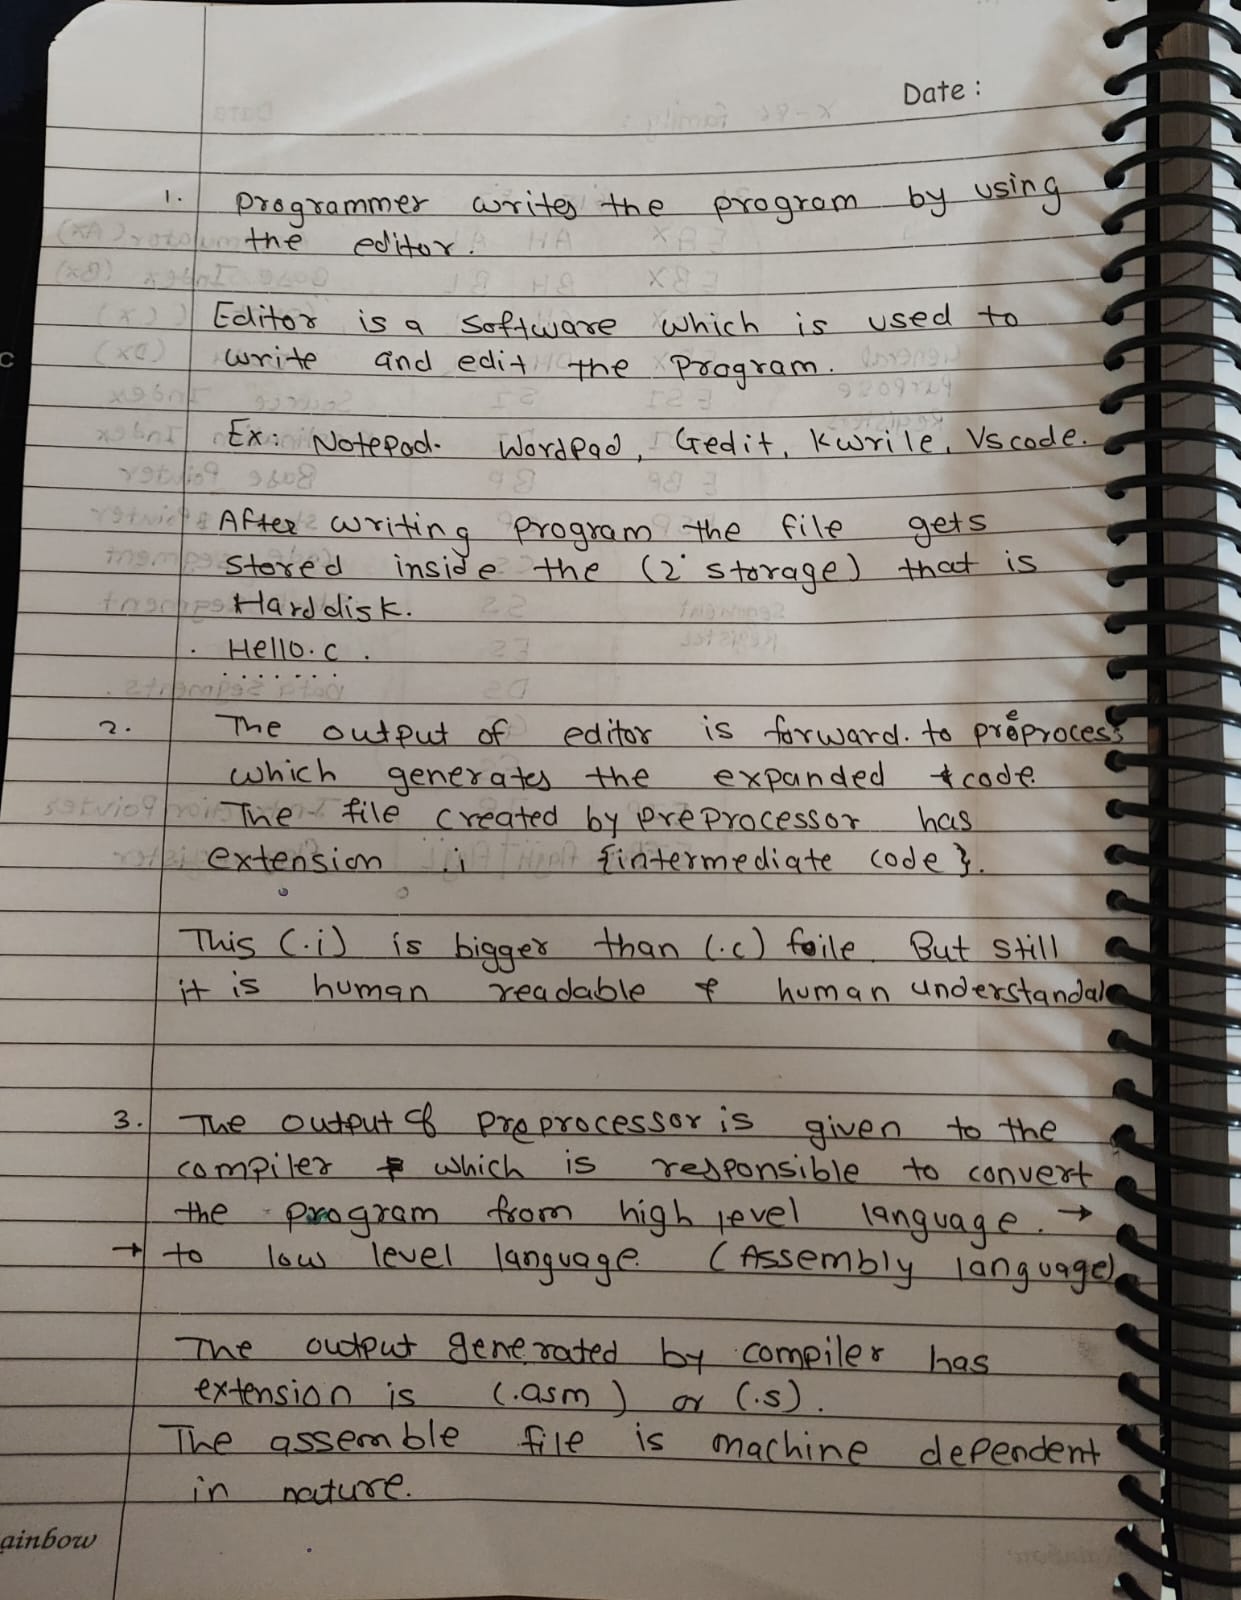 Date :
1. programmer writes the program by using
the editor.
Editor is a software which is used to
write and edit the program.
Ex: Notepad. Wordpad, Gedit, kwrile, Vscode.
After writing program the file gets
stored inside the (2° storage) that is
Harddisk.
. Hello.c .
2. The output of editor is forward. to preprocess
which generates the expanded code.
The file created by preprocessor has
extension .i {intermediate code}.
This (.i) is bigger than (.c) foile. But still
it is human readable & human understandale
3. The output of preprocessor is given to the
compiler which is responsible to convert
the program from high level language. →
→ to low level language. (Assembly language)
The output generated by compiler has
extension is (.asm) or (.s).
The assemble file is machine dependent
in nature.
ainbow